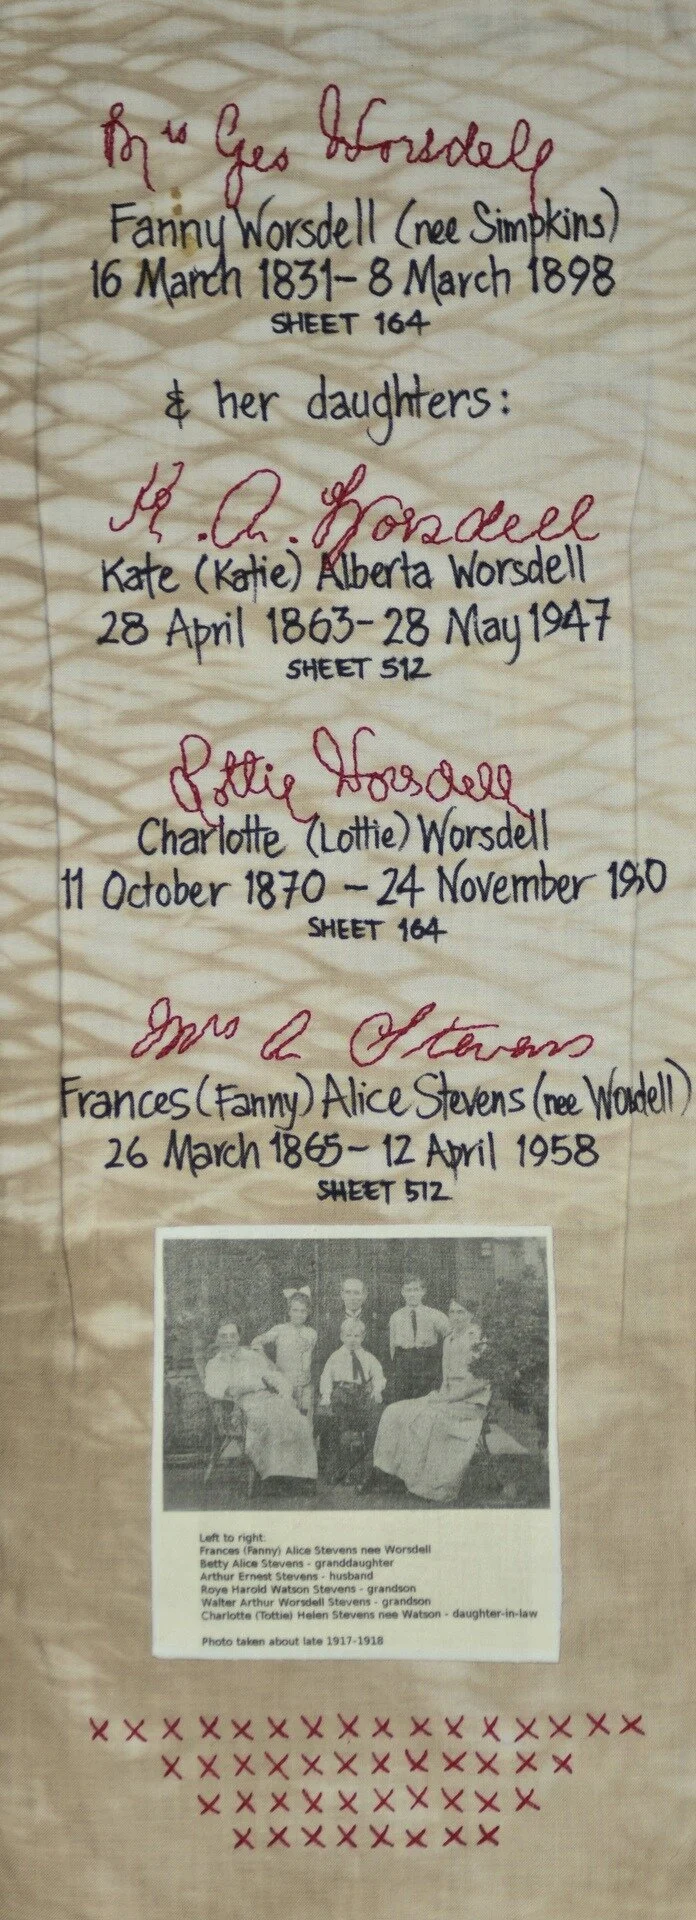 Mrs Geo Worsdell
Fanny Worsdell (nee Simpkins)
16 March 1831 – 8 March 1898
SHEET 164
& her daughters:
K. A. Worsdell
Kate (Katie) Alberta Worsdell
28 April 1863 – 28 May 1947
SHEET 512
Lottie Worsdell
Charlotte (Lottie) Worsdell
11 October 1870 – 24 November
SHEET 164
Mrs A Stevens
Frances (Fanny) Alice Stevens (nee Worsdell)
26 March 1865 – 12 April 1958
SHEET 512
Left to right:
Frances (Fanny) Alice Stevens nee Worsdell
Betty Alice Stevens - granddaughter
Arthur Ernest Stevens - husband
Roye Harold Watson Stevens - grandson
Walter Arthur Worsdell Stevens - grandson
Charlotte (Tottie) Helen Stevens nee Watson - daughter-in-law
Photo taken about late 1917-1918
X X X X X X X X X X X X X X X X
X X X X X X X X X X X X
X X X X X X X X X X
X X X X X X X X